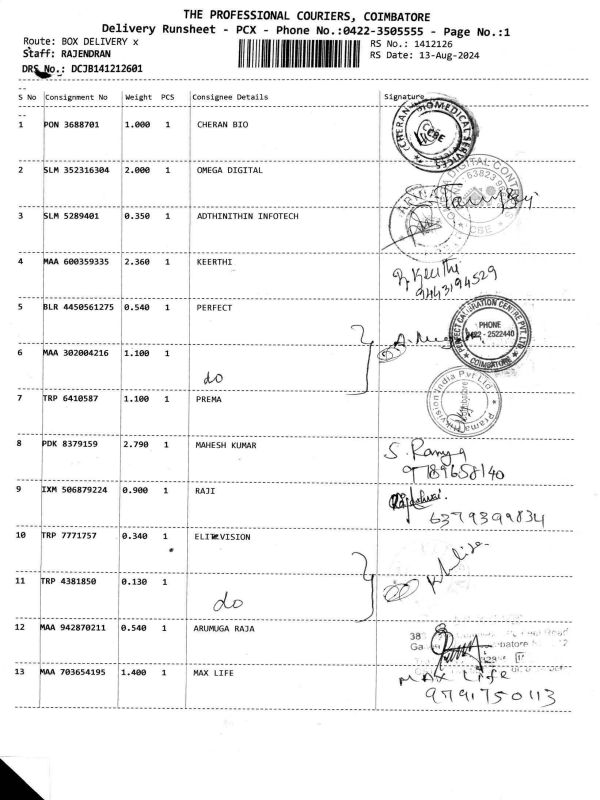 THE PROFESSIONAL COURIERS, COIMBATORE
Delivery Runsheet - PCX - Phone No.:0422-3505555 - Page No.:1
Route: BOX DELIVERY x
Staff: RAJENDRAN
DRS No.: DCJB141212601
RS No.: 1412126
RS Date: 13-Aug-2024
S No Consignment No Weight PCS Consignee Details Signature
1 PON 3688701 1.000 1 CHERAN BIO
CHERAN BIOMEDICAL SERVICES
CBE
2 SLM 352316304 2.000 1 OMEGA DIGITAL
63823
CBE
3 SLM 5289401 0.350 1 ADTHINITHIN INFOTECH
4 MAA 600359335 2.360 1 KEERTHI
Keerthi
9443194529
5 BLR 4450561275 0.540 1 PERFECT
PERFECT CALIBRATION CENTRE PVT LTD
PHONE
0422 - 2522440
COIMBATORE
6 MAA 302004216 1.100 1
do
7 TRP 6410587 1.100 1 PREMA
Prama Hikvision India Pvt Ltd
8 PDK 8379159 2.790 1 MAHESH KUMAR
S. Ramya
9789658140
9 IXM 506879224 0.900 1 RAJI
6379399834
10 TRP 7771757 0.340 1 ELITEVISION
11 TRP 4381850 0.130 1
do
12 MAA 942870211 0.540 1 ARUMUGA RAJA
13 MAA 703654195 1.400 1 MAX LIFE
MAX Life
9791750113